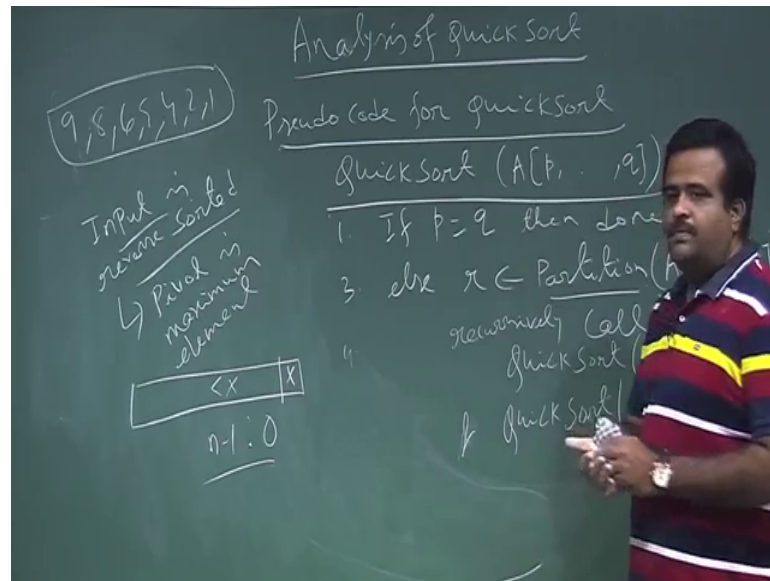 Analysis of Quick Sort
9,8,6,5,4,2,1
Pseudo code for Quick Sort
Quick Sort (A[p, . . , q])
1. If p = q then done
3. else r ← Partition (A
4 recursively Call
Quick Sort (
& Quick Sort (
InPut is
reverse sorted
↳ Pivot is
maximum
element
<x x
n-1 : 0